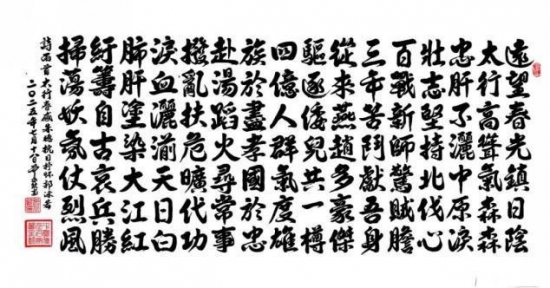 遠望春光鎮日陰
太行高聳氣森森
忠肝不灑中原淚
壯志堅持北伐心
百戰新師驚賊膽
三年苦鬥獻吾身
從來燕趙多豪傑
驅逐倭兒共一樽
四億人群氣度雄
族於盡孝國於忠
赴湯蹈火尋常事
撥亂扶危曠代功
淚血灑湔天日白
肺肝塗染大江紅
紆籌自古哀兵勝
掃蕩妖氛仗烈風
詩兩首 太行春感 朱德 抗日抒怀 郭沫若
二〇二五年七月十日